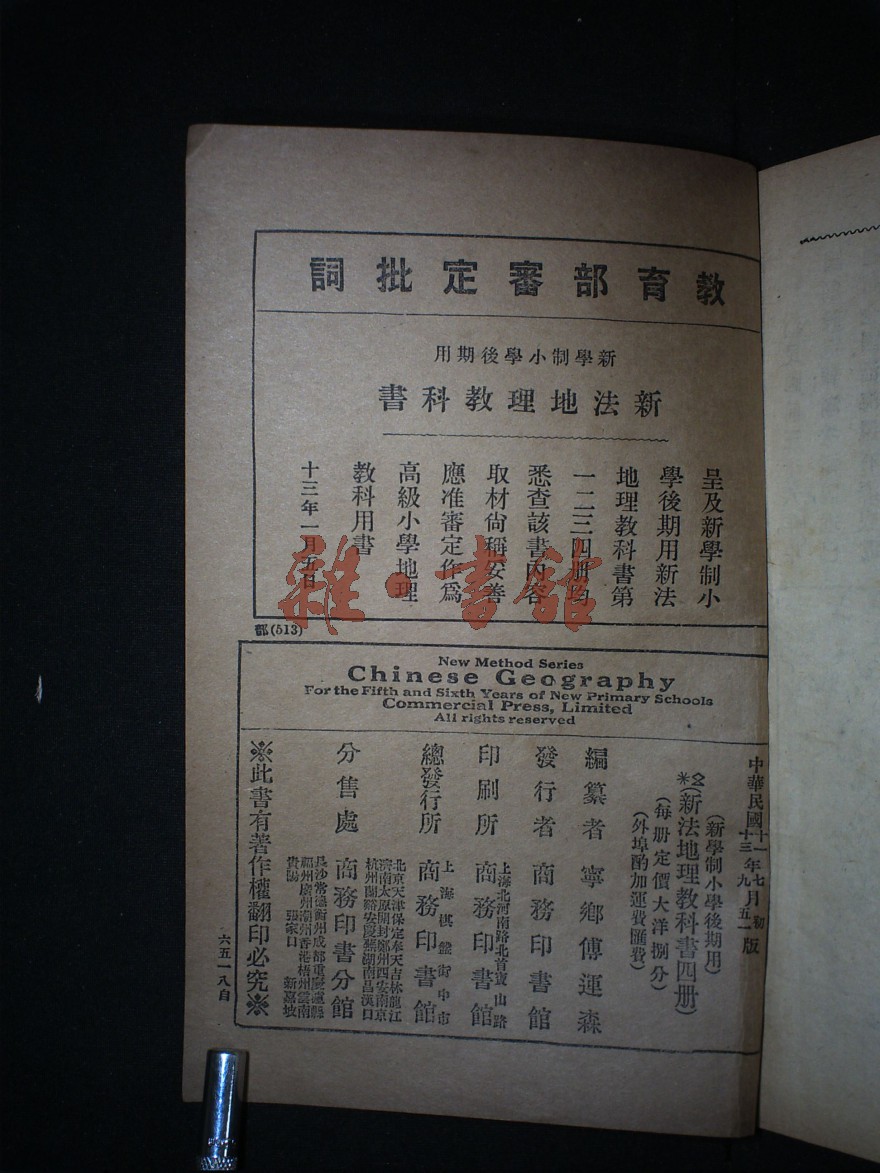 教育部審定批詞
新學制小學後期用
新法地理教科書
呈及新學制小
學後期用新法
地理教科書第
一二三四册均
悉查該書內容
取材尙稱妥善
應准審定作爲
高級小學地理
教科用書
十三年一月五日
部(513)
雜·書館
New Method Series
Chinese Geography
For the Fifth and Sixth Years of New Primary Schools
Commercial Press, Limited
All rights reserved
中華民國十一年七月初版
十三 九 五一
(新學制小學後期用)
(新法地理教科書四册)
(每册定價大洋捌分)
(外埠酌加運費匯費)
編纂者 寧鄉傅運森
發行者 商務印書館
印刷所 上海北河南路北首寶山路 商務印書館
總發行所 上海棋盤街中市 商務印書館
分售處 商務印書分館
北京天津保定奉天吉林龍江
濟南太原開封鄭州西安南京
杭州蘭谿安慶蕪湖南昌漢口
長沙常德衡州成都重慶瀘縣
福州廣州潮州香港梧州雲南
貴陽 張家口 新嘉坡
※此書有著作權翻印必究※
六五一八自